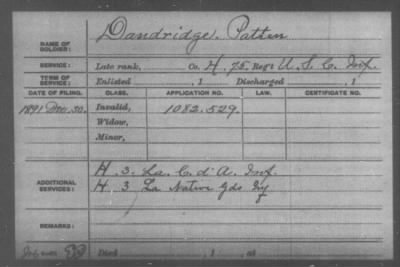 NAME OF SOLDIER: Dandridge, Patten
SERVICE: Late rank, Co. H. 75. Reg't U. S. C. Inf.
TERM OF SERVICE: Enlisted , 1 Discharged , 1
DATE OF FILING. CLASS. APPLICATION NO. LAW. CERTIFICATE NO.
1891 Dec. 30. Invalid, 1082.529.
Widow,
Minor,
ADDITIONAL SERVICES: H. 3. La. C. d'A. Inf.
H. 3 La Native Gds Inf
REMARKS:
Died , 1 , at